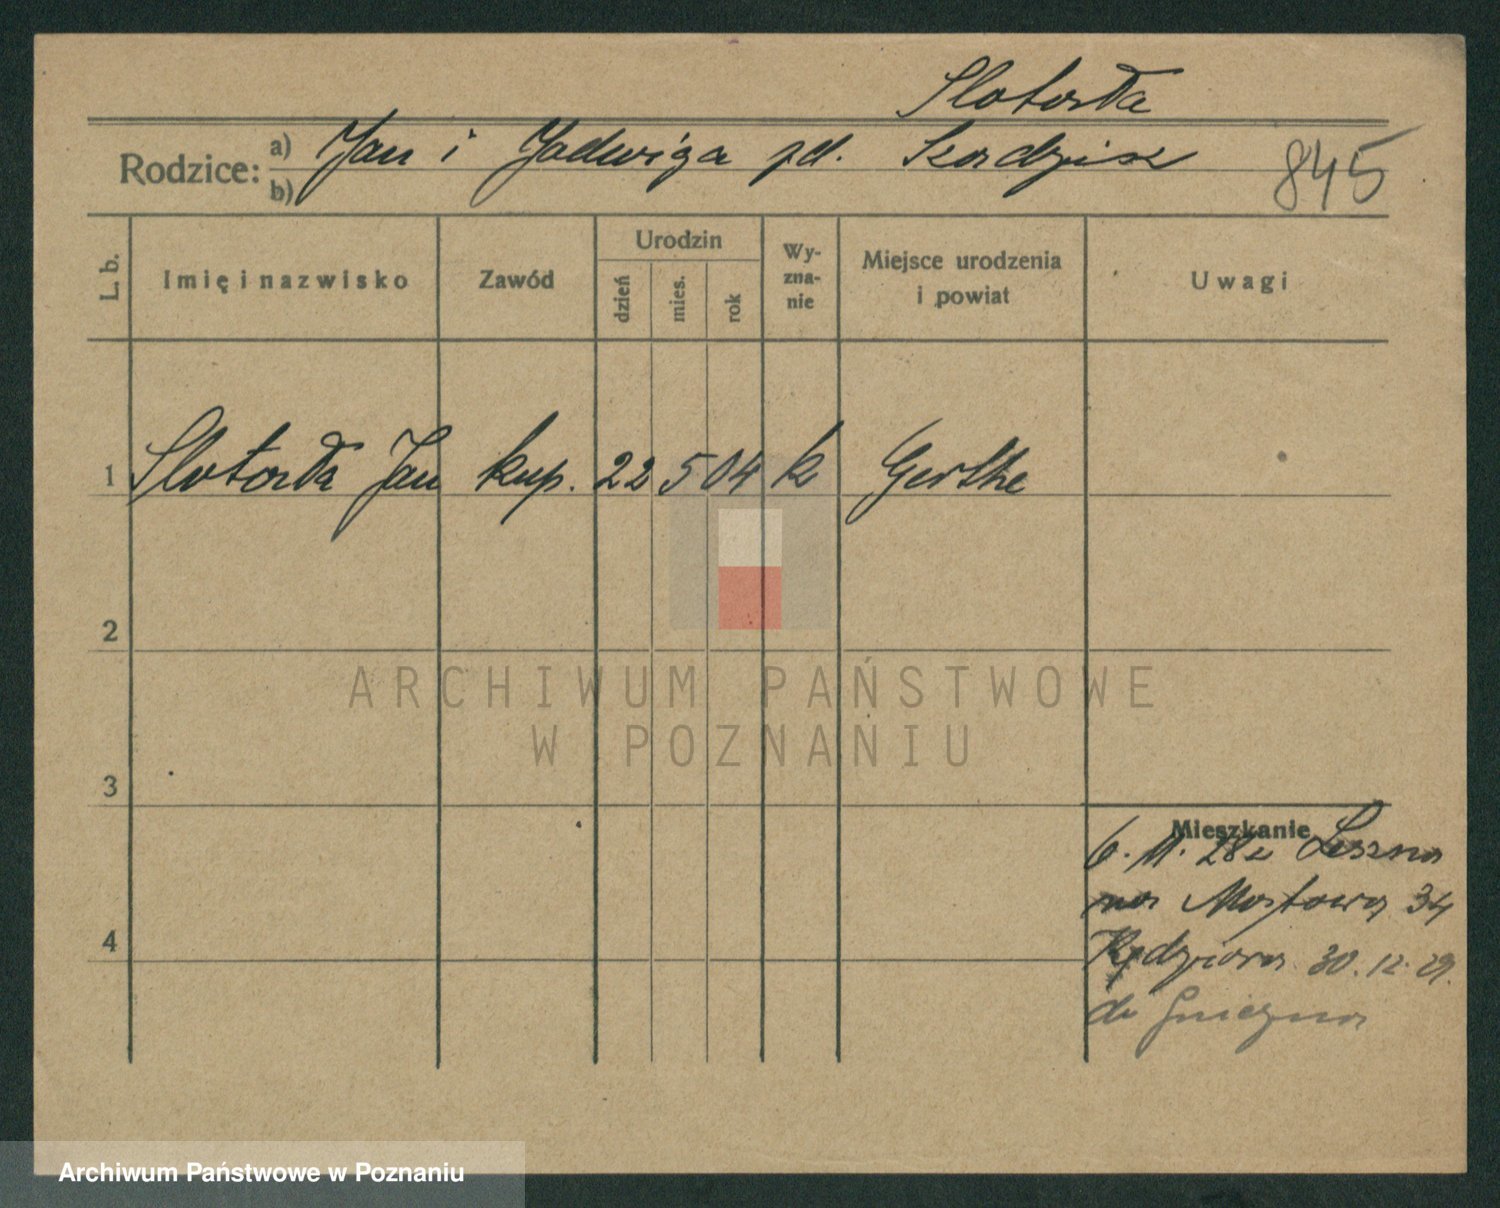 Slotorła
Rodzice: a) Jan i Jadwiga zd.
b)
845
L. b.
Imię i nazwisko
Zawód
Urodzin
dzień
mies.
rok
Wy-
zna-
nie
Miejsce urodzenia
i powiat
Uwagi
1 Slotorła Jan kup. 22 5 04 k Gerthe
2
ARCHIWUM PAŃSTWOWE
W POZNANIU
3
Mieszkanie
6. 11. 28 z Leszna
na Mostową 34
Kędziora 30. 12. 29.
do Gniezna
4
Archiwum Państwowe w Poznaniu